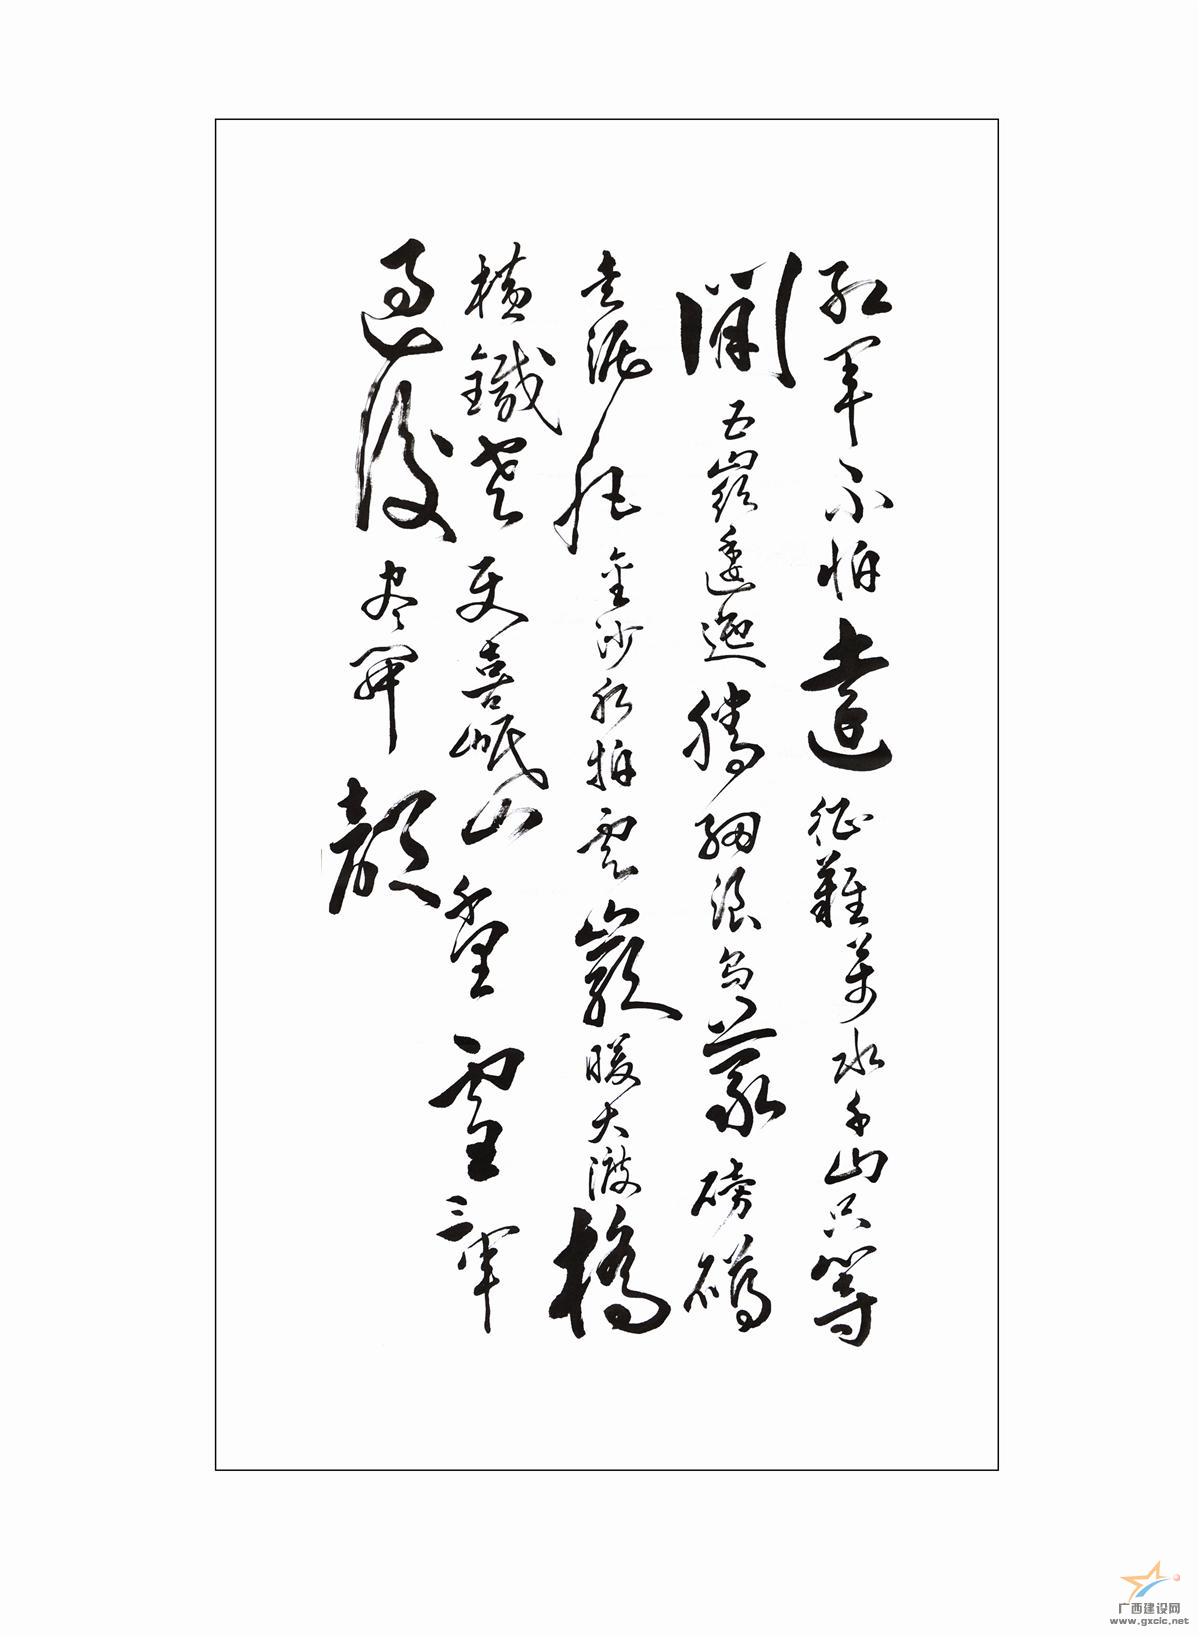 红军不怕远征难万水千山只等
闲五岭逶迤腾细浪乌蒙磅礴
走泥丸金沙水拍云岩暖大渡桥
横铁索更喜岷山千里雪三军
过后尽开颜
广西建设网
www.gxcic.net